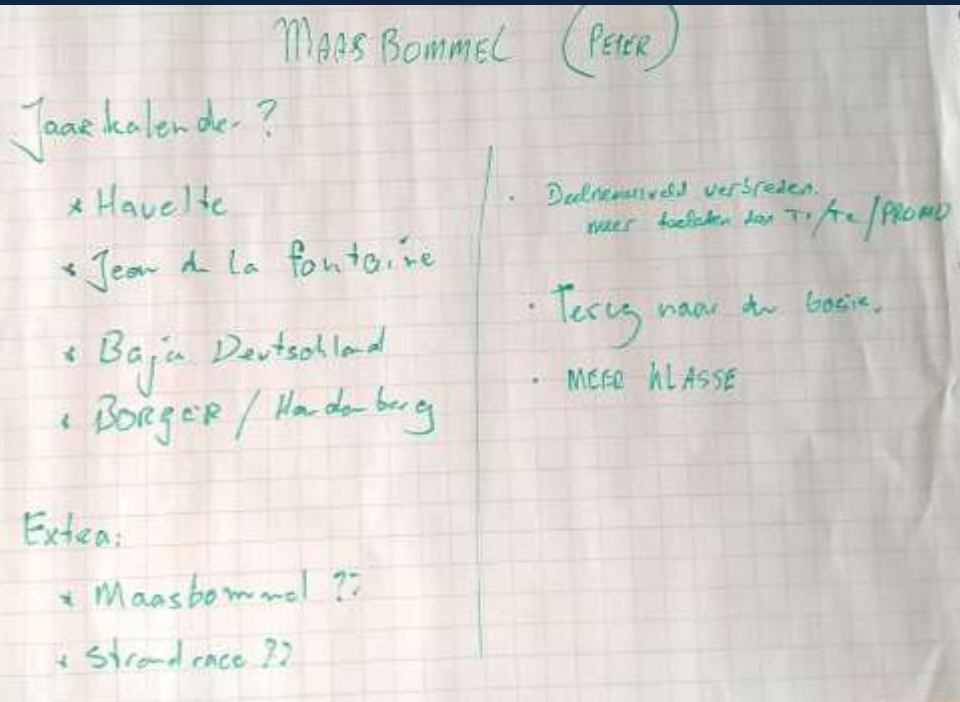 MAASBOMMEL (PETER)
Jaarkalender?
* Havelte
* Jean de la fontaine
* Baja Deutschland
* BORGER / Hardenberg
Extra:
* Maasbommel ??
* Strandrace ??
· Deelnemersveld verbreden.
meer toelaten dan T1/T2/PROMO
· Terug naar de basis.
· MEER KLASSE